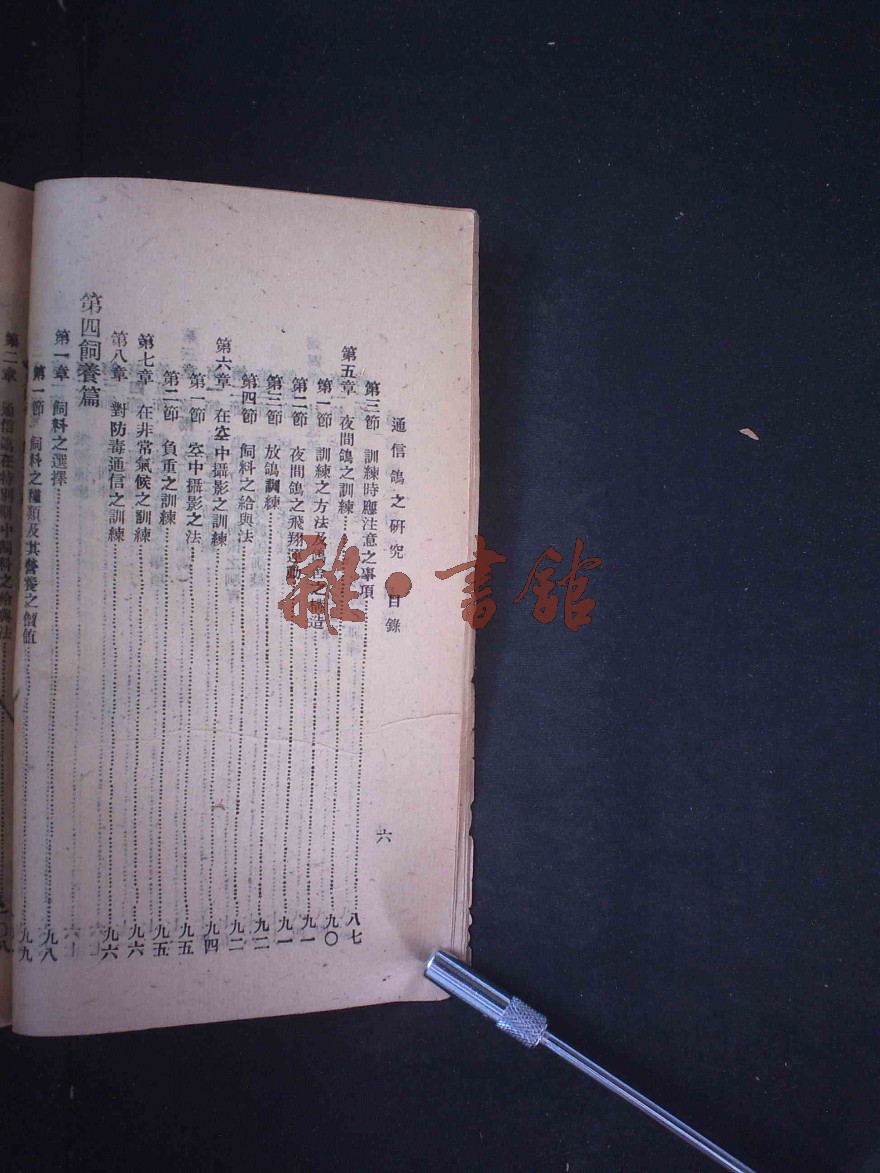 通信鴿之研究 目錄
六
第三節 訓練時應注意之事項 八七
第五章 夜間鴿之訓練 九〇
第一節 訓練之方法及 造 九一
第二節 夜間鴿之飛翔運動 九一
第三節 放鴿訓練 九二
第四節 飼料之給與法 九二
第六章 在空中攝影之訓練 九四
第一節 空中攝影之法 九五
第二節 負重之訓練 九五
第七章 在非常氣候之訓練 九六
第八章 對防毒通信之訓練 九六
第四飼養篇
第一章 飼料之選擇 九八
第一節 飼料之種類及其營養之價值 九九
第二章 通信鴿在特別期中飼料之給與法 一〇八
雜·書館